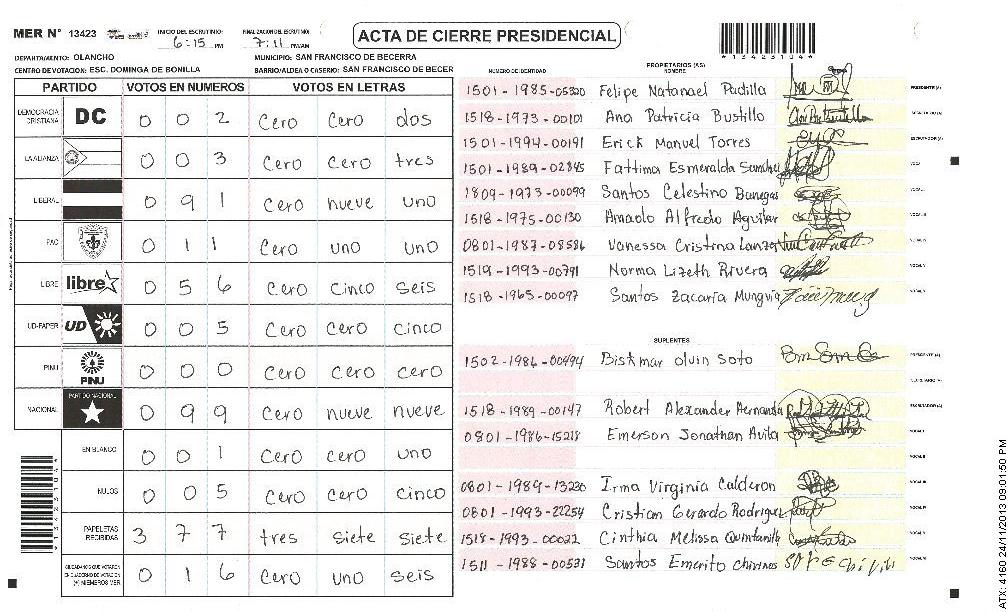 MER N° 13423 INICIO DEL ESCRUTINIO: 6:15 PM FINALIZACION DEL ESCRUTINIO: 7:11 PM/AM
ACTA DE CIERRE PRESIDENCIAL
*13423104*
DEPARTAMENTO: OLANCHO MUNICIPIO: SAN FRANCISCO DE BECERRA
CENTRO DE VOTACION: ESC. DOMINGA DE BONILLA BARRIO/ALDEA O CASERIO: SAN FRANCISCO DE BECER
PARTIDO VOTOS EN NUMEROS VOTOS EN LETRAS
DEMOCRACIA CRISTIANA DC 0 0 2 cero cero dos
LA ALIANZA 0 0 3 cero cero tres
LIBERAL 0 9 1 cero nueve uno
PAC 0 1 1 cero uno uno
LIBRE libre 0 5 6 cero cinco seis
UD-FAPER UD 0 0 5 cero cero cinco
PINU PINU 0 0 0 cero cero cero
NACIONAL PARTIDO NACIONAL 0 9 9 cero nueve nueve
EN BLANCO 0 0 1 cero cero uno
NULOS 0 0 5 cero cero cinco
PAPELETAS RECIBIDAS 3 7 7 tres siete siete
CIUDADANOS QUE VOTARON EN CUADERNO DE VOTACION (+) MIEMBROS MER 0 1 6 cero uno seis
NUMERO DE IDENTIDAD PROPIETARIOS (AS) NOMBRE
1501-1985-05320 Felipe Natanael Padilla PRESIDENTE (A)
1518-1973-00101 Ana Patricia Bustillo SECRETARIO (A)
1501-1994-00191 Erick Manuel Torres ESCRUTADOR (A)
1501-1989-02845 Fattima Esmeralda Sanchez
1809-1973-00099 Santos Celestino Banegas
1518-1975-00130 Arnaldo Alfredo Aguilar
0801-1987-09586 Vanessa Cristina Lanzo
1519-1993-00791 Norma Lizeth Rivera
1518-1965-00097 Santos Zacaria Munguia
SUPLENTES
1502-1986-00494 Biskmar olvin Soto PRESIDENTE (A)
SECRETARIO (A)
1518-1989-00147 Robert Alexander Hernandez ESCRUTADOR (A)
0801-1986-15218 Emerson Jonathan Avila
0801-1989-13230 Irma Virginia Calderon
0801-1993-22254 Cristian Gerardo Rodriguez
1518-1993-00022 Cinthia Melissa Quintanilla
1511-1988-00531 Santos Emerito chirinos
ATX: 4160 24/11/2013 09:01:50 PM